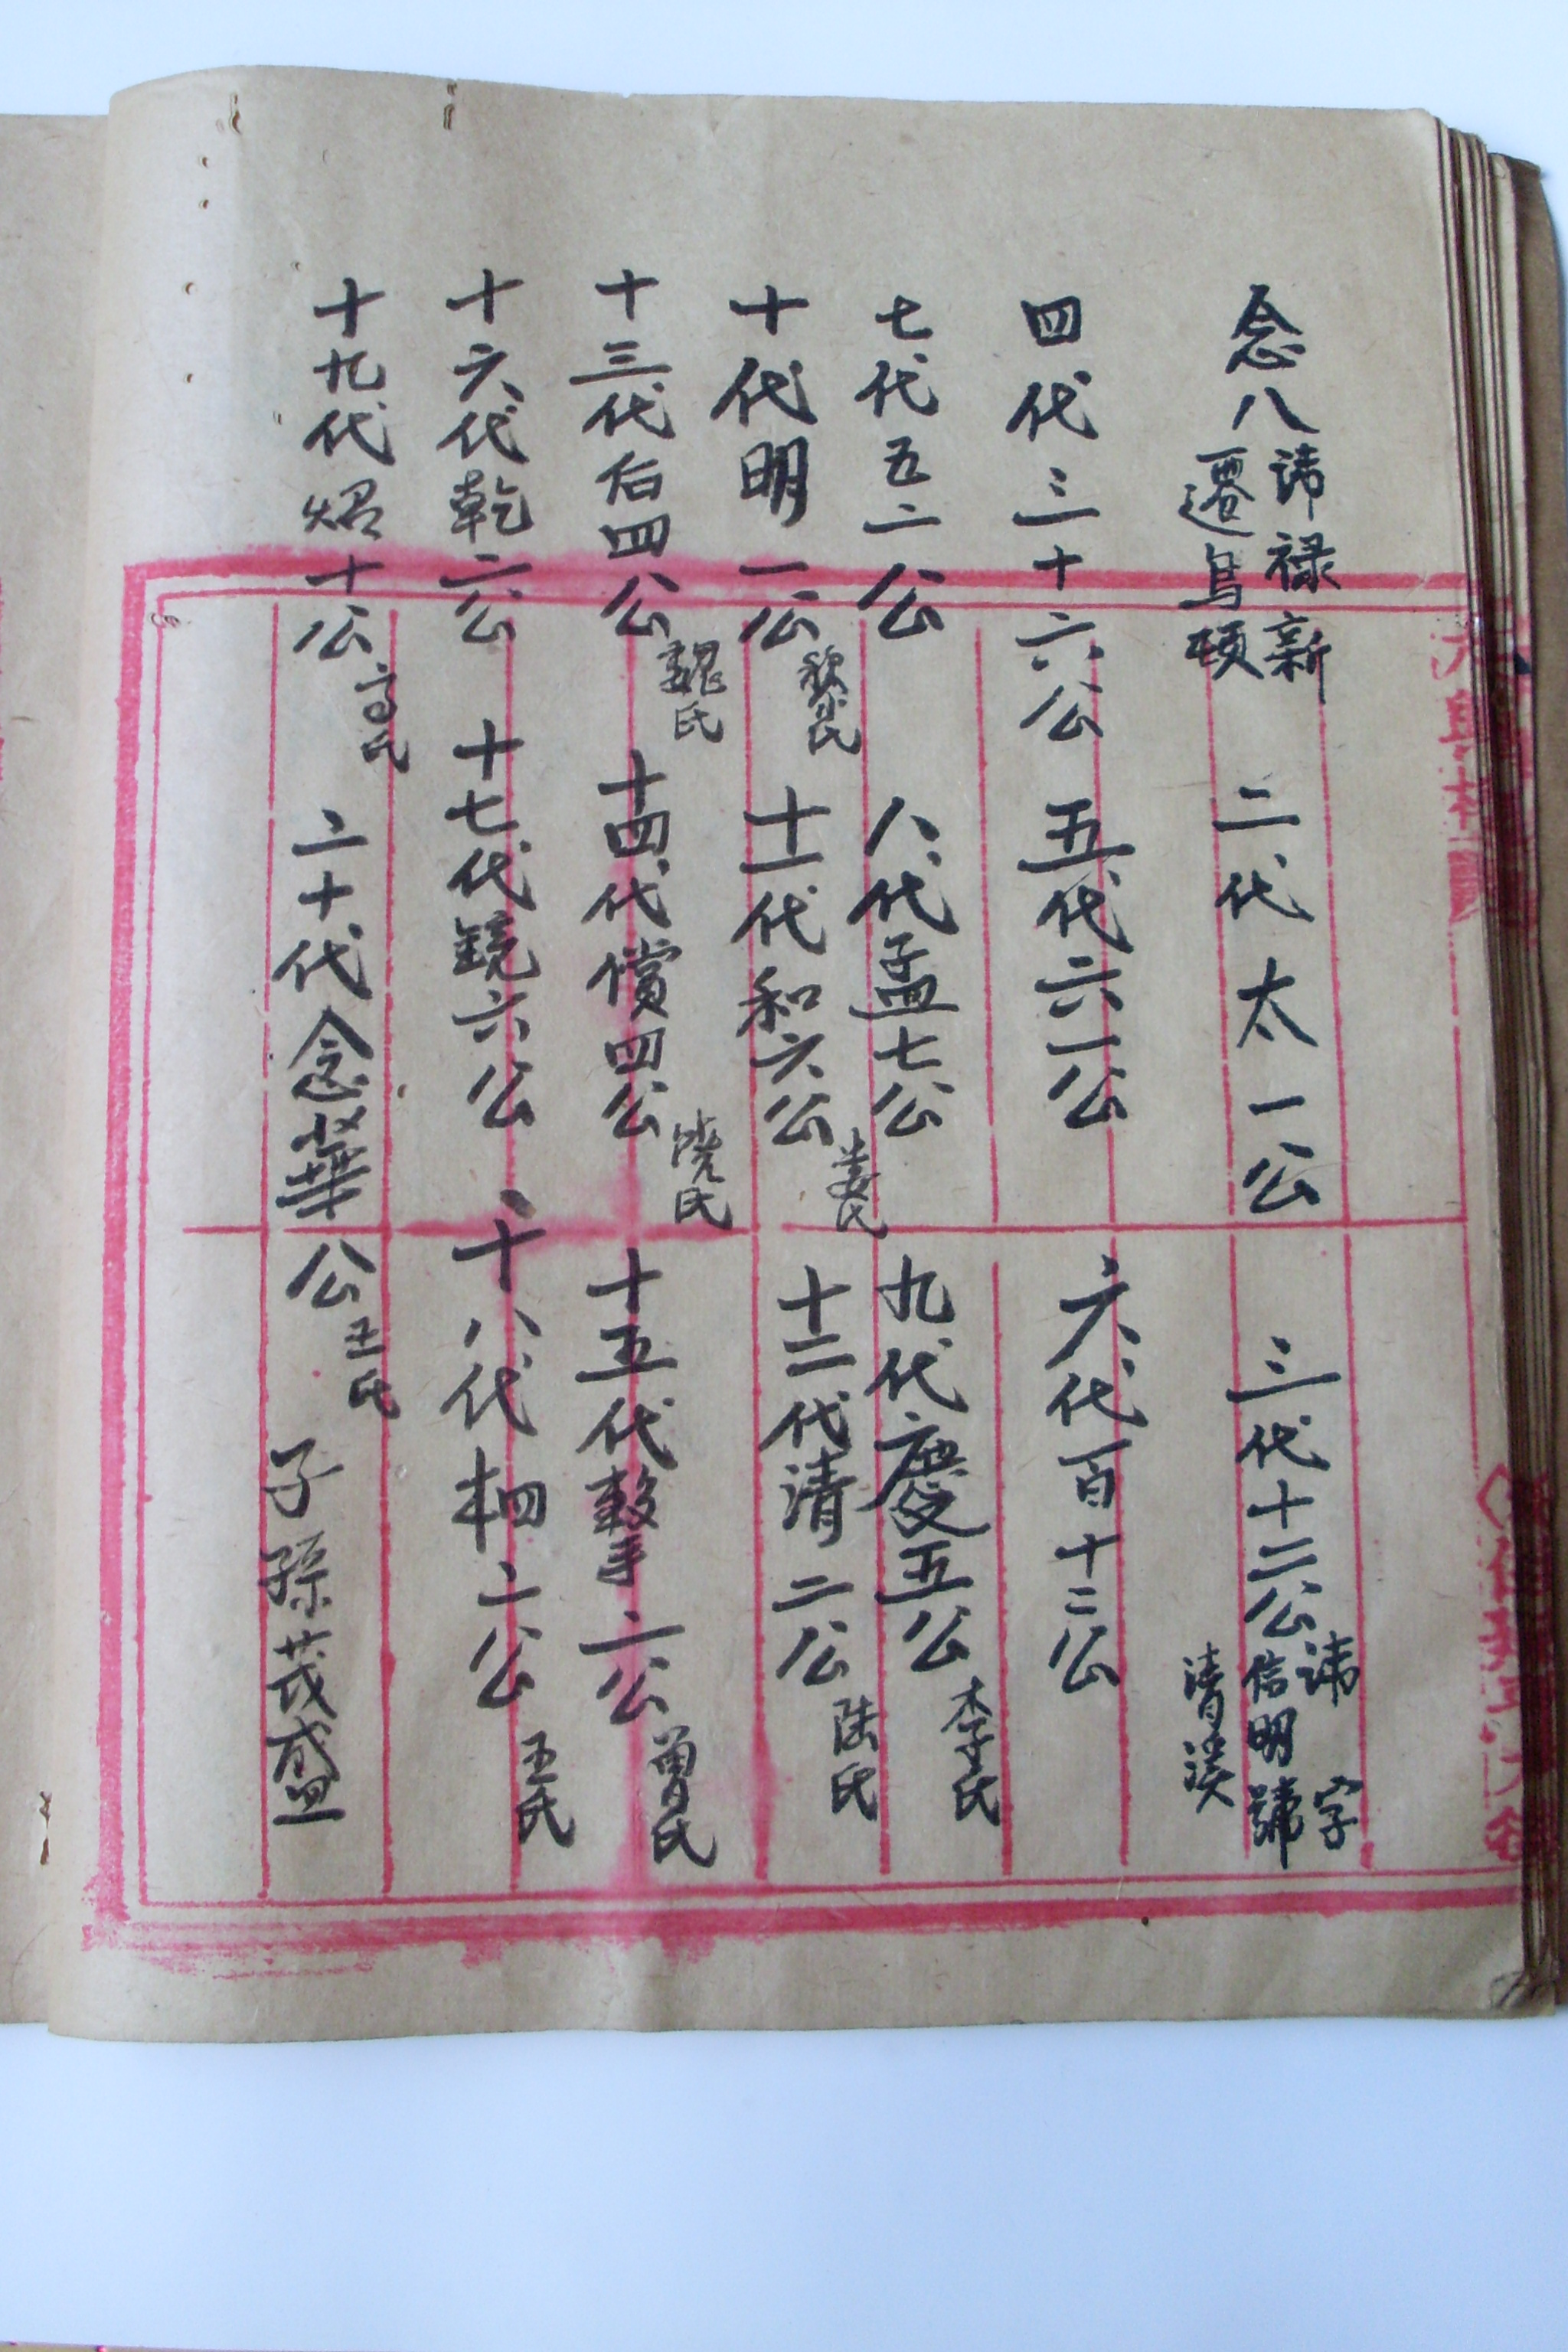 念八諱禄新遷烏頓 二代太一公 三代十二公諱字信明號清溪
四代三十六公 五代六一公 六代百十二公
七代五二公 八代孟七公 九代慶五公李氏
十代明一公黎氏 十一代和六公姜氏 十二代清二公陆氏
十三代后四公魏氏 十四代償四公饶氏 十五代擊六公曽氏
十六代乾二公 十七代鏡六公 十八代柙二公王氏
十九代炤十公高氏 二十代念華公王氏 子孫茂盛